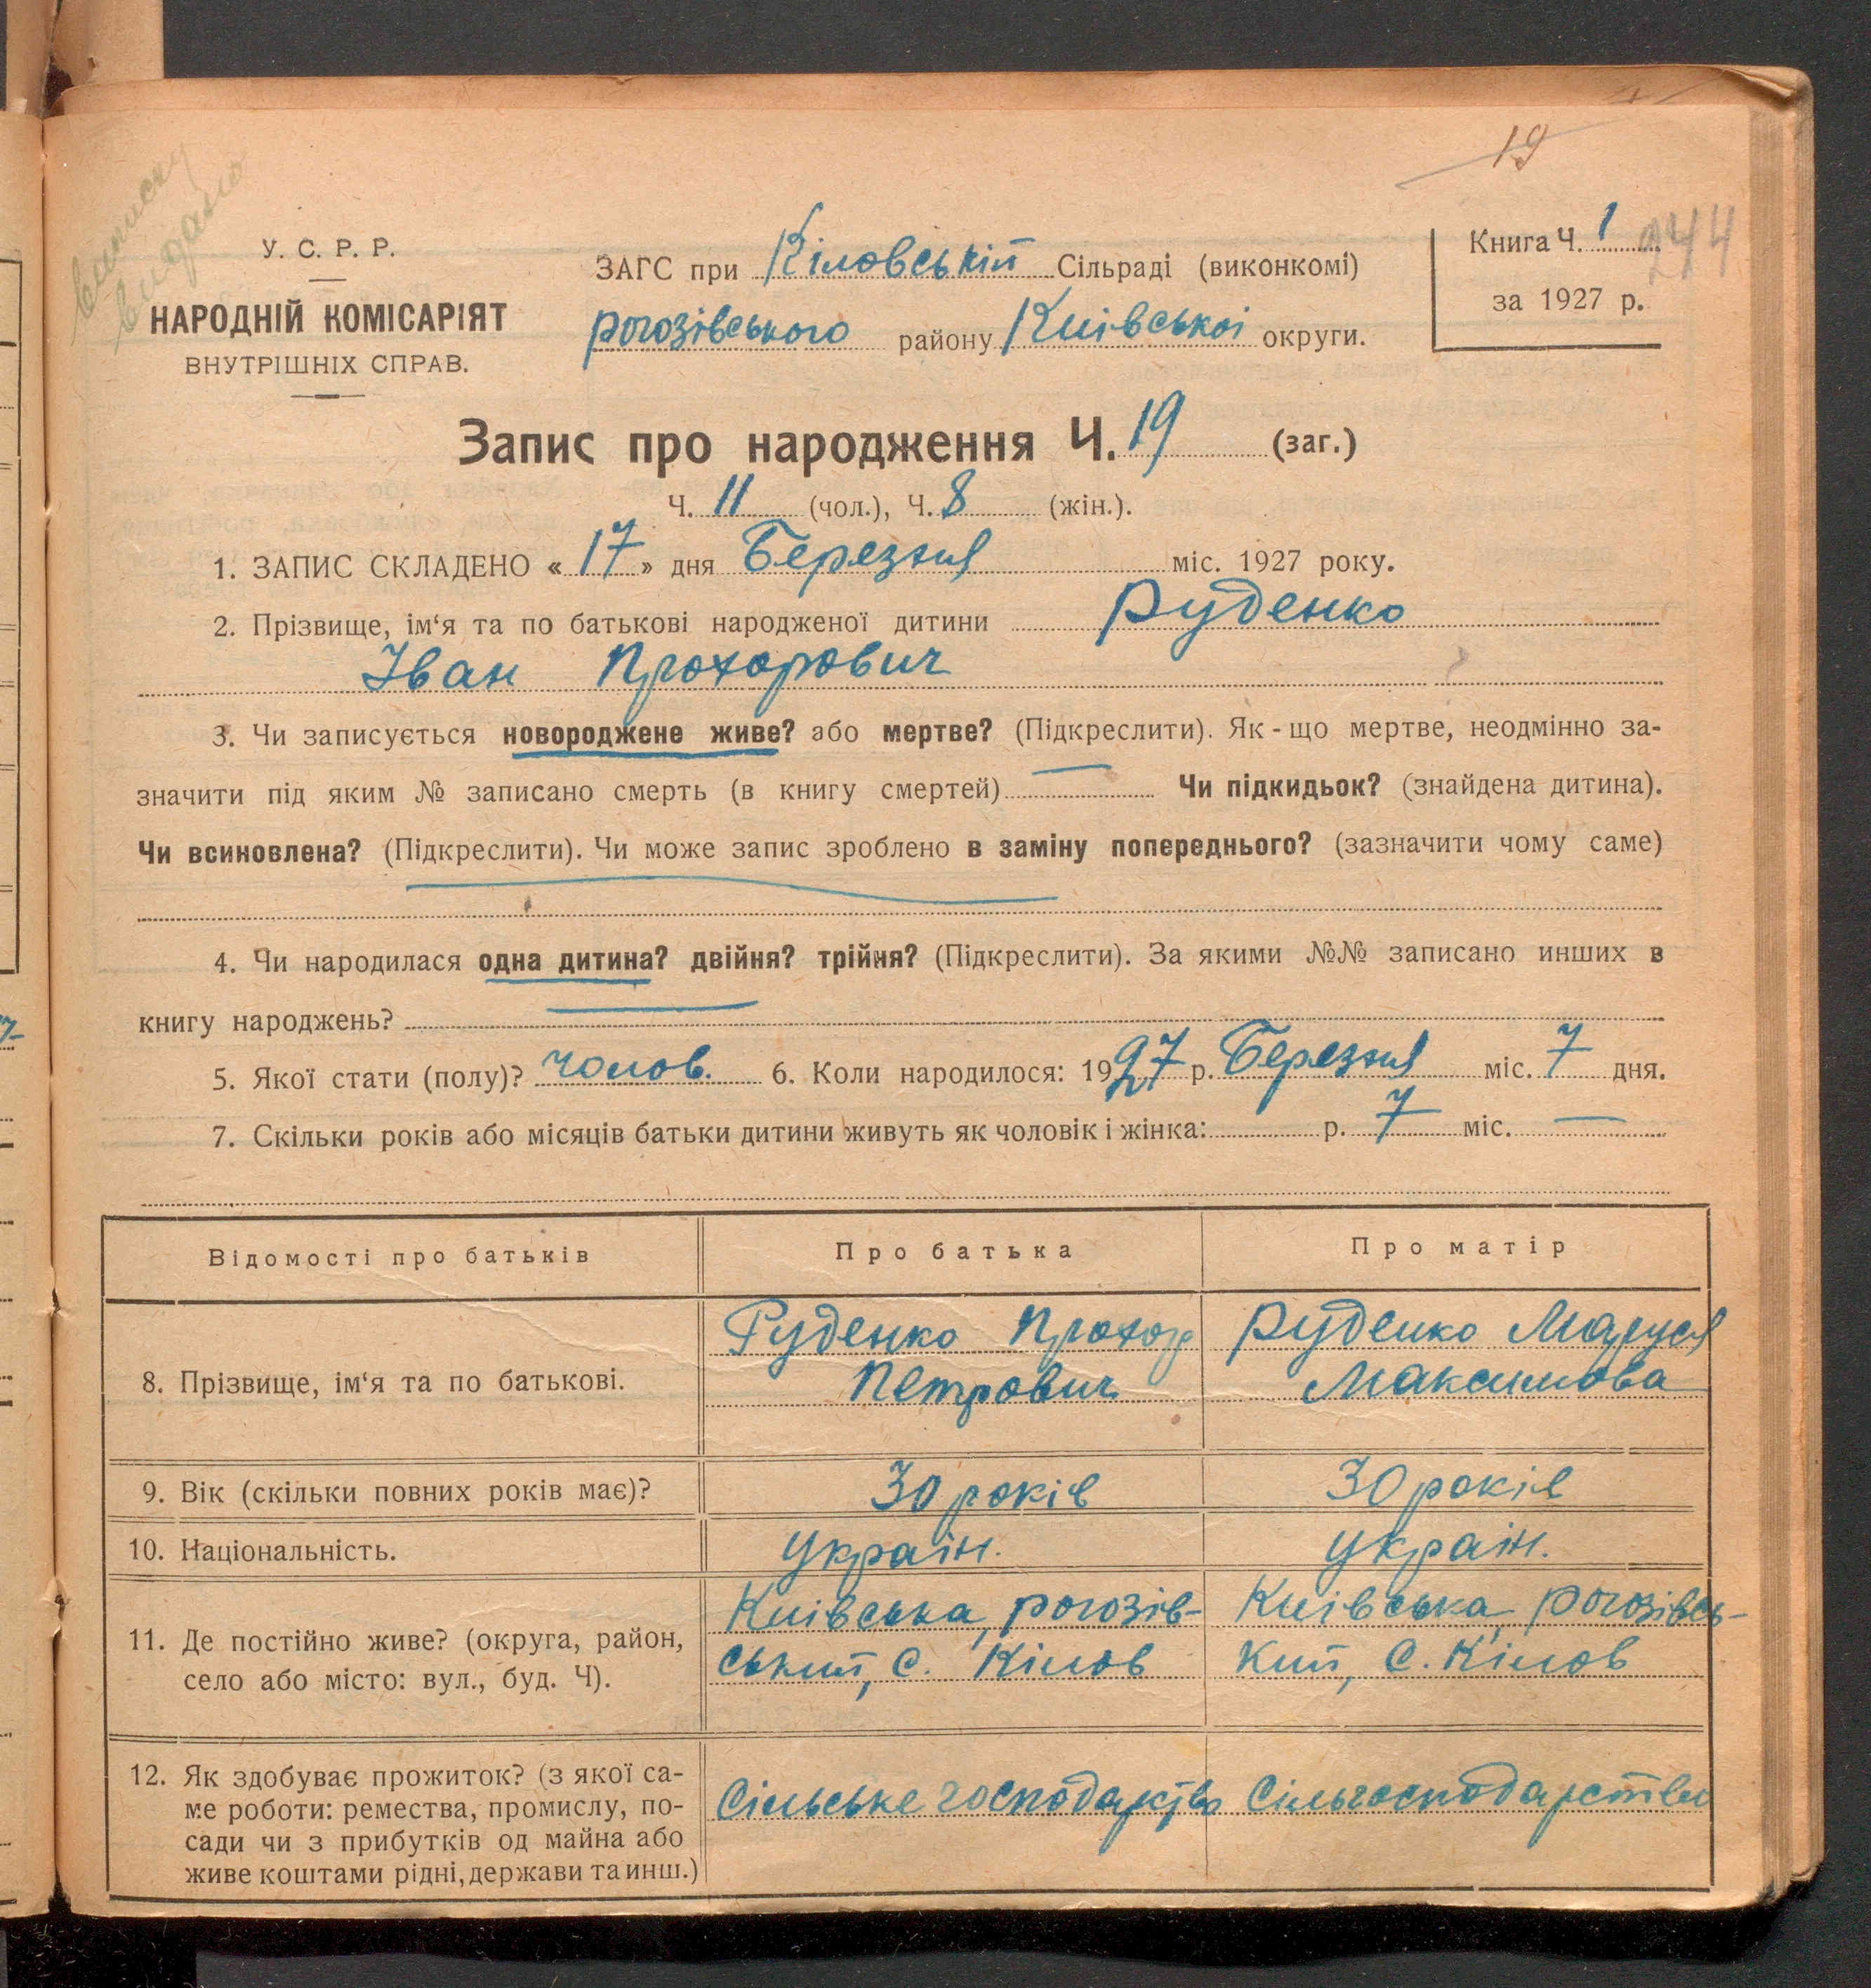 19
виписку
видано
У. С. Р. Р.
НАРОДНІЙ КОМІСАРІЯТ
ВНУТРІШНІХ СПРАВ.
ЗАГС при Кіловській Сільраді (виконкомі)
рогозівського району Київської округи.
Книга Ч. 1
244
за 1927 р.
Запис про народження Ч. 19 (заг.)
Ч. 11 (чол.), Ч. 8 (жін.).
1. ЗАПИС СКЛАДЕНО « 17 » дня Березня міс. 1927 року.
2. Прізвище, ім‘я та по батькові народженої дитини Руденко
Іван Прохорович
3. Чи записується новороджене живе? або мертве? (Підкреслити). Як - що мертве, неодмінно за-
значити під яким № записано смерть (в книгу смертей) — Чи підкидьок? (знайдена дитина).
Чи всиновлена? (Підкреслити). Чи може запис зроблено в заміну попереднього? (зазначити чому саме)
4. Чи народилася одна дитина? двійня? трійня? (Підкреслити). За якими №№ записано инших в
книгу народжень?
5. Якої стати (полу)? чолов. 6. Коли народилося: 1927 р. Березня міс. 7 дня.
7. Скільки років або місяців батьки дитини живуть як чоловік і жінка: р. 7 міс. —
Відомості про батьків Про батька Про матір
8. Прізвище, ім‘я та по батькові.
Руденко Прохор
Петрович
Руденко Маруся
Максимова
9. Вік (скільки повних років має)? 30 років 30 років
10. Національність. Украін. Украін.
11. Де постійно живе? (округа, район,
село або місто: вул., буд. Ч).
Київська, рогозів-
ський, с. Кілов
Київська, рогозівсь-
кий, с. Кілов
12. Як здобуває прожиток? (з якої са-
ме роботи: ремества, промислу, по-
сади чи з прибутків од майна або
живе коштами рідні, держави та инш.)
Сільське господарство
Сільгосподарством